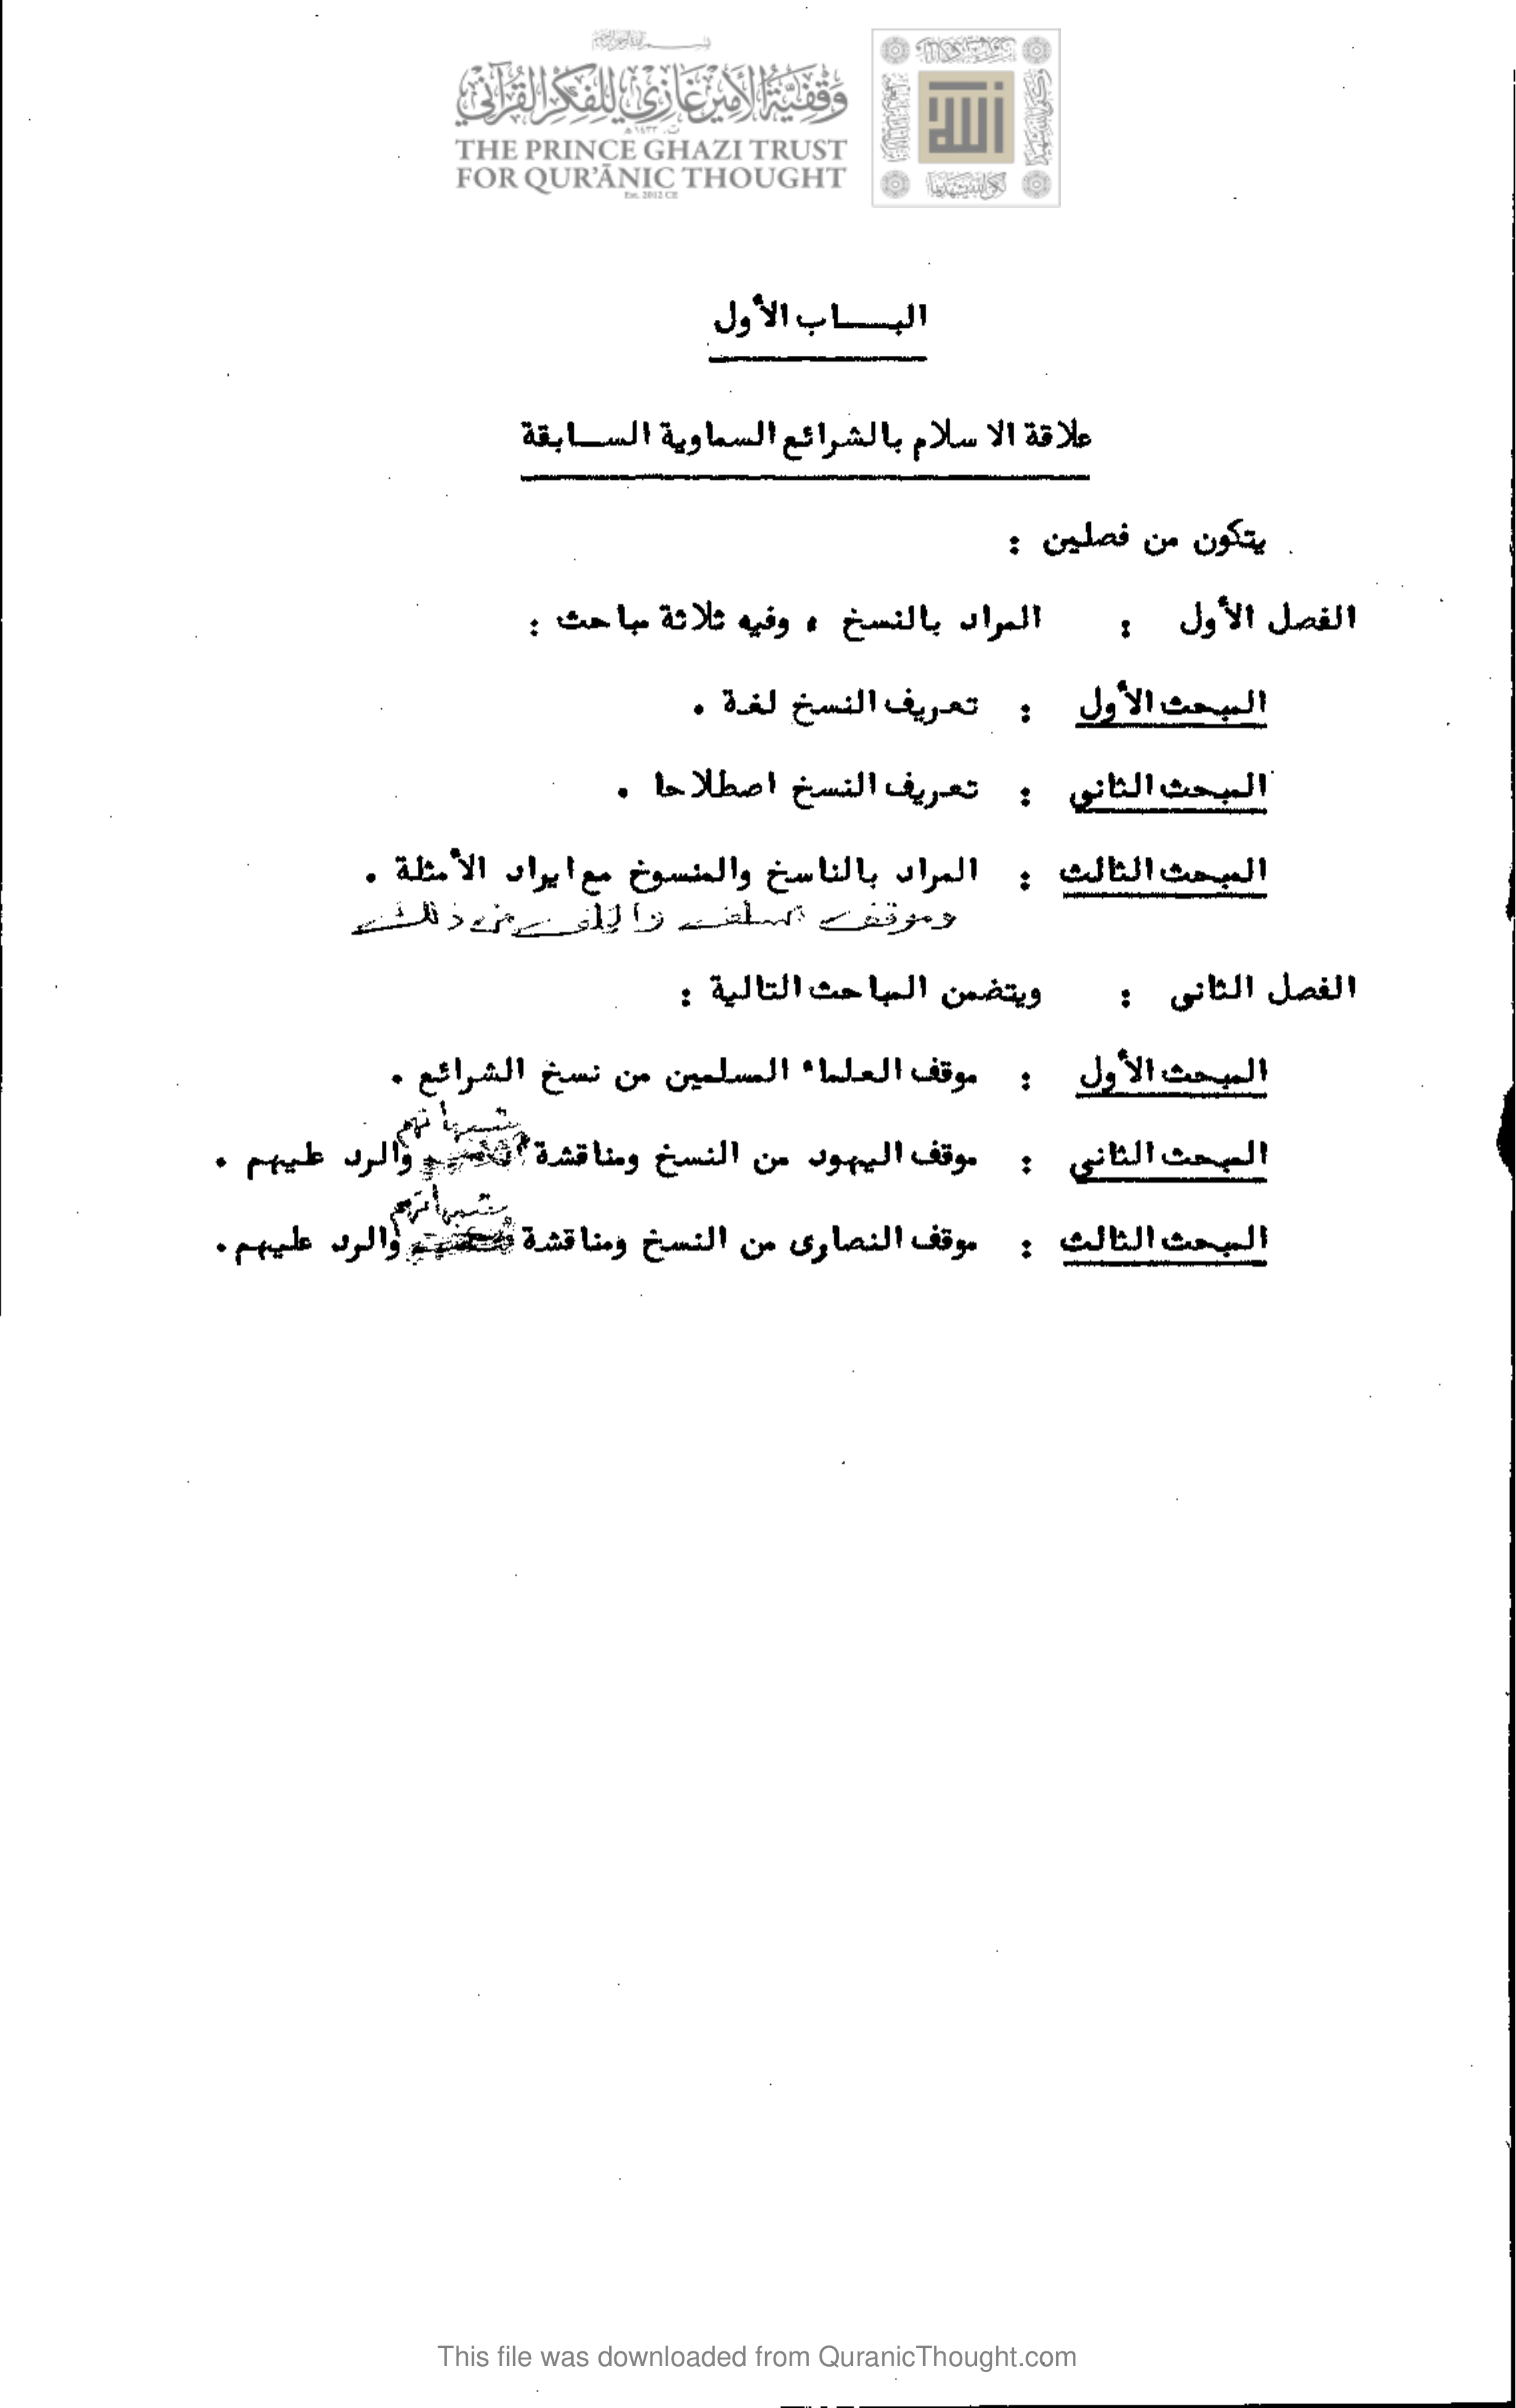 وقفية الأمير غازي للفكر القرآني
THE PRINCE GHAZI TRUST
FOR QUR'ĀNIC THOUGHT
Est. 2012 CE
البـــاب الأول
علاقة الا سلام بالشرائع السماوية الســابقة
يتكون من فصلين :
الفصل الأول : المراد بالنسخ ، وفيه ثلاثة مباحث :
المبحث الأول : تعريف النسخ لغة .
المبحث الثاني : تعريف النسخ اصطلاحا .
المبحث الثالث : المراد بالناسخ والمنسوخ مع ايراد الأمثلة .
وموقف من ذلك
الفصل الثانى : ويتضمن المباحث التالية :
المبحث الأول : موقف العلماء المسلمين من نسخ الشرائع .
شبهاتهم
المبحث الثاني : موقف اليهود من النسخ ومناقشة والرد عليهم .
شبهاتهم
المبحث الثالث : موقف النصارى من النسخ ومناقشة والرد عليهم .
This file was downloaded from QuranicThought.com